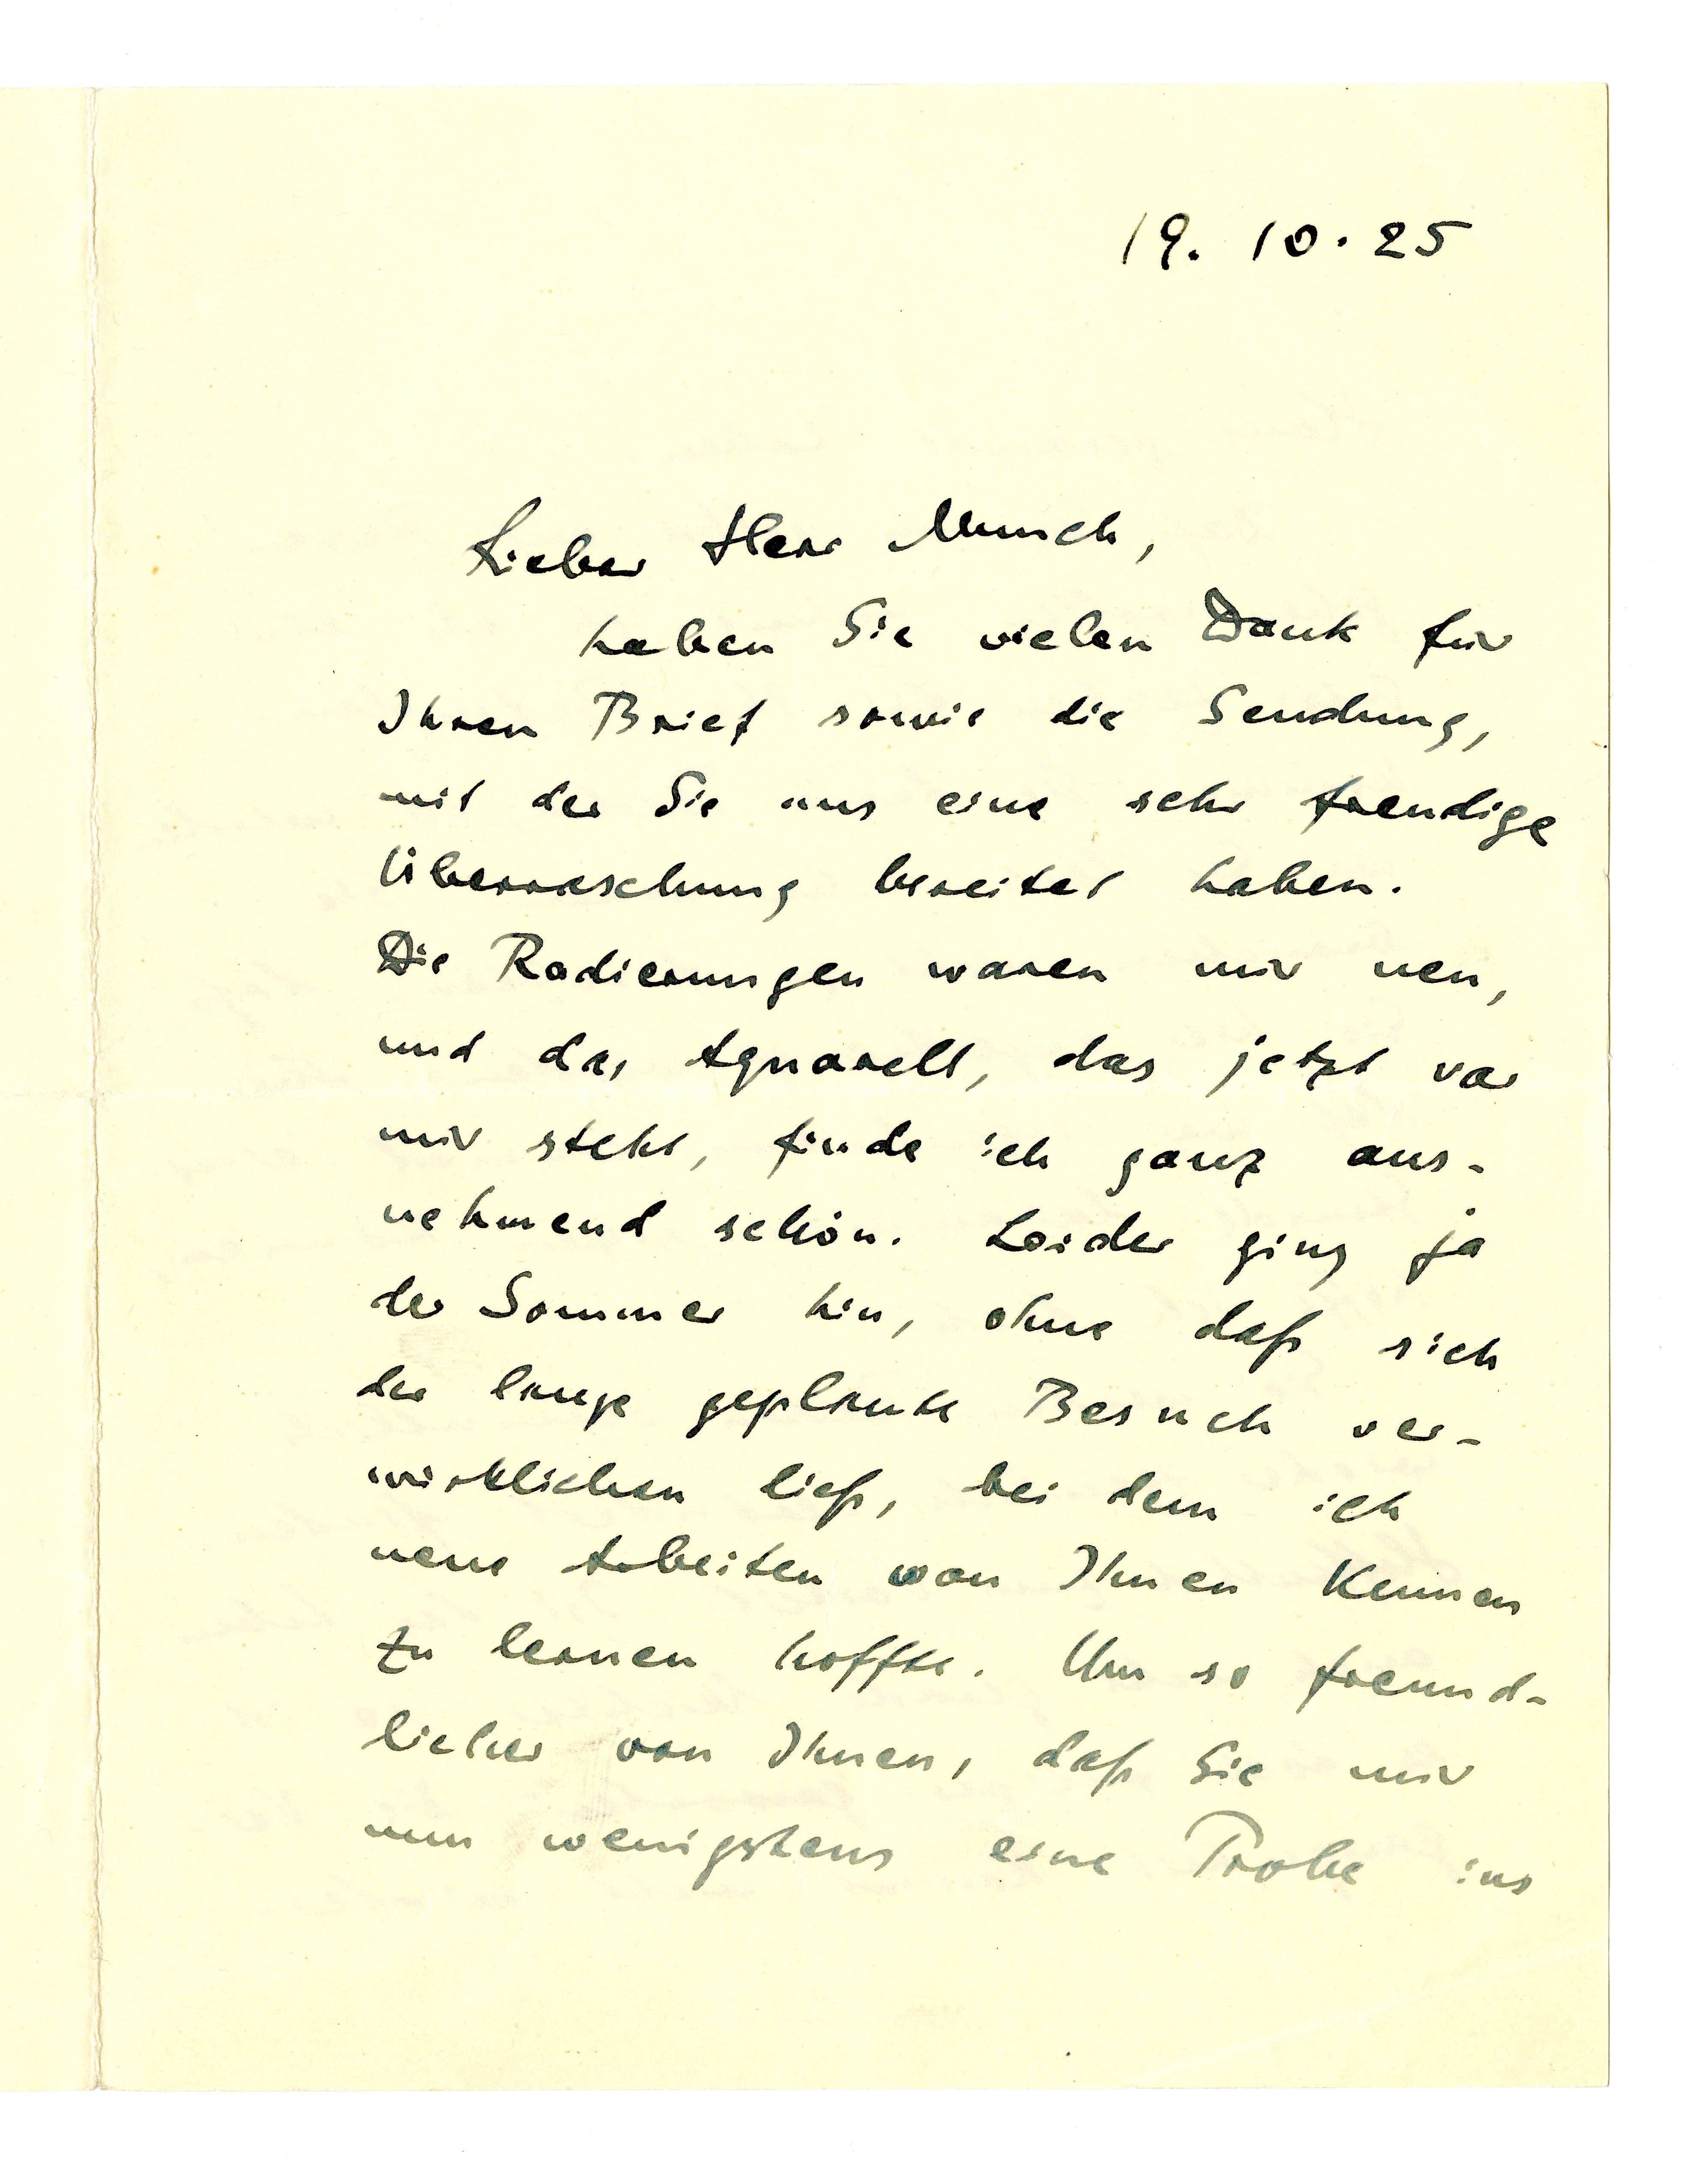 19. 10. 25
Lieber Herr Munch,
haben Sie vielen Dank für
Ihren Brief sowie die Sendung,
mit der Sie uns eine sehr freudige
Überraschung bereitet haben.
Die Radierungen waren mir neu,
und das Aquarell, das jetzt vor
mir steht, finde ich ganz aus-
nehmend schön. Leider ging ja
der Sommer hin, ohne daß sich
der lange geplante Besuch ver-
wirklichen ließ, bei dem ich
neue Arbeiten von Ihnen kennen
zu lernen hoffte. Um so freund-
licher von Ihnen, daß Sie mir
nun wenigstens eine Probe ins